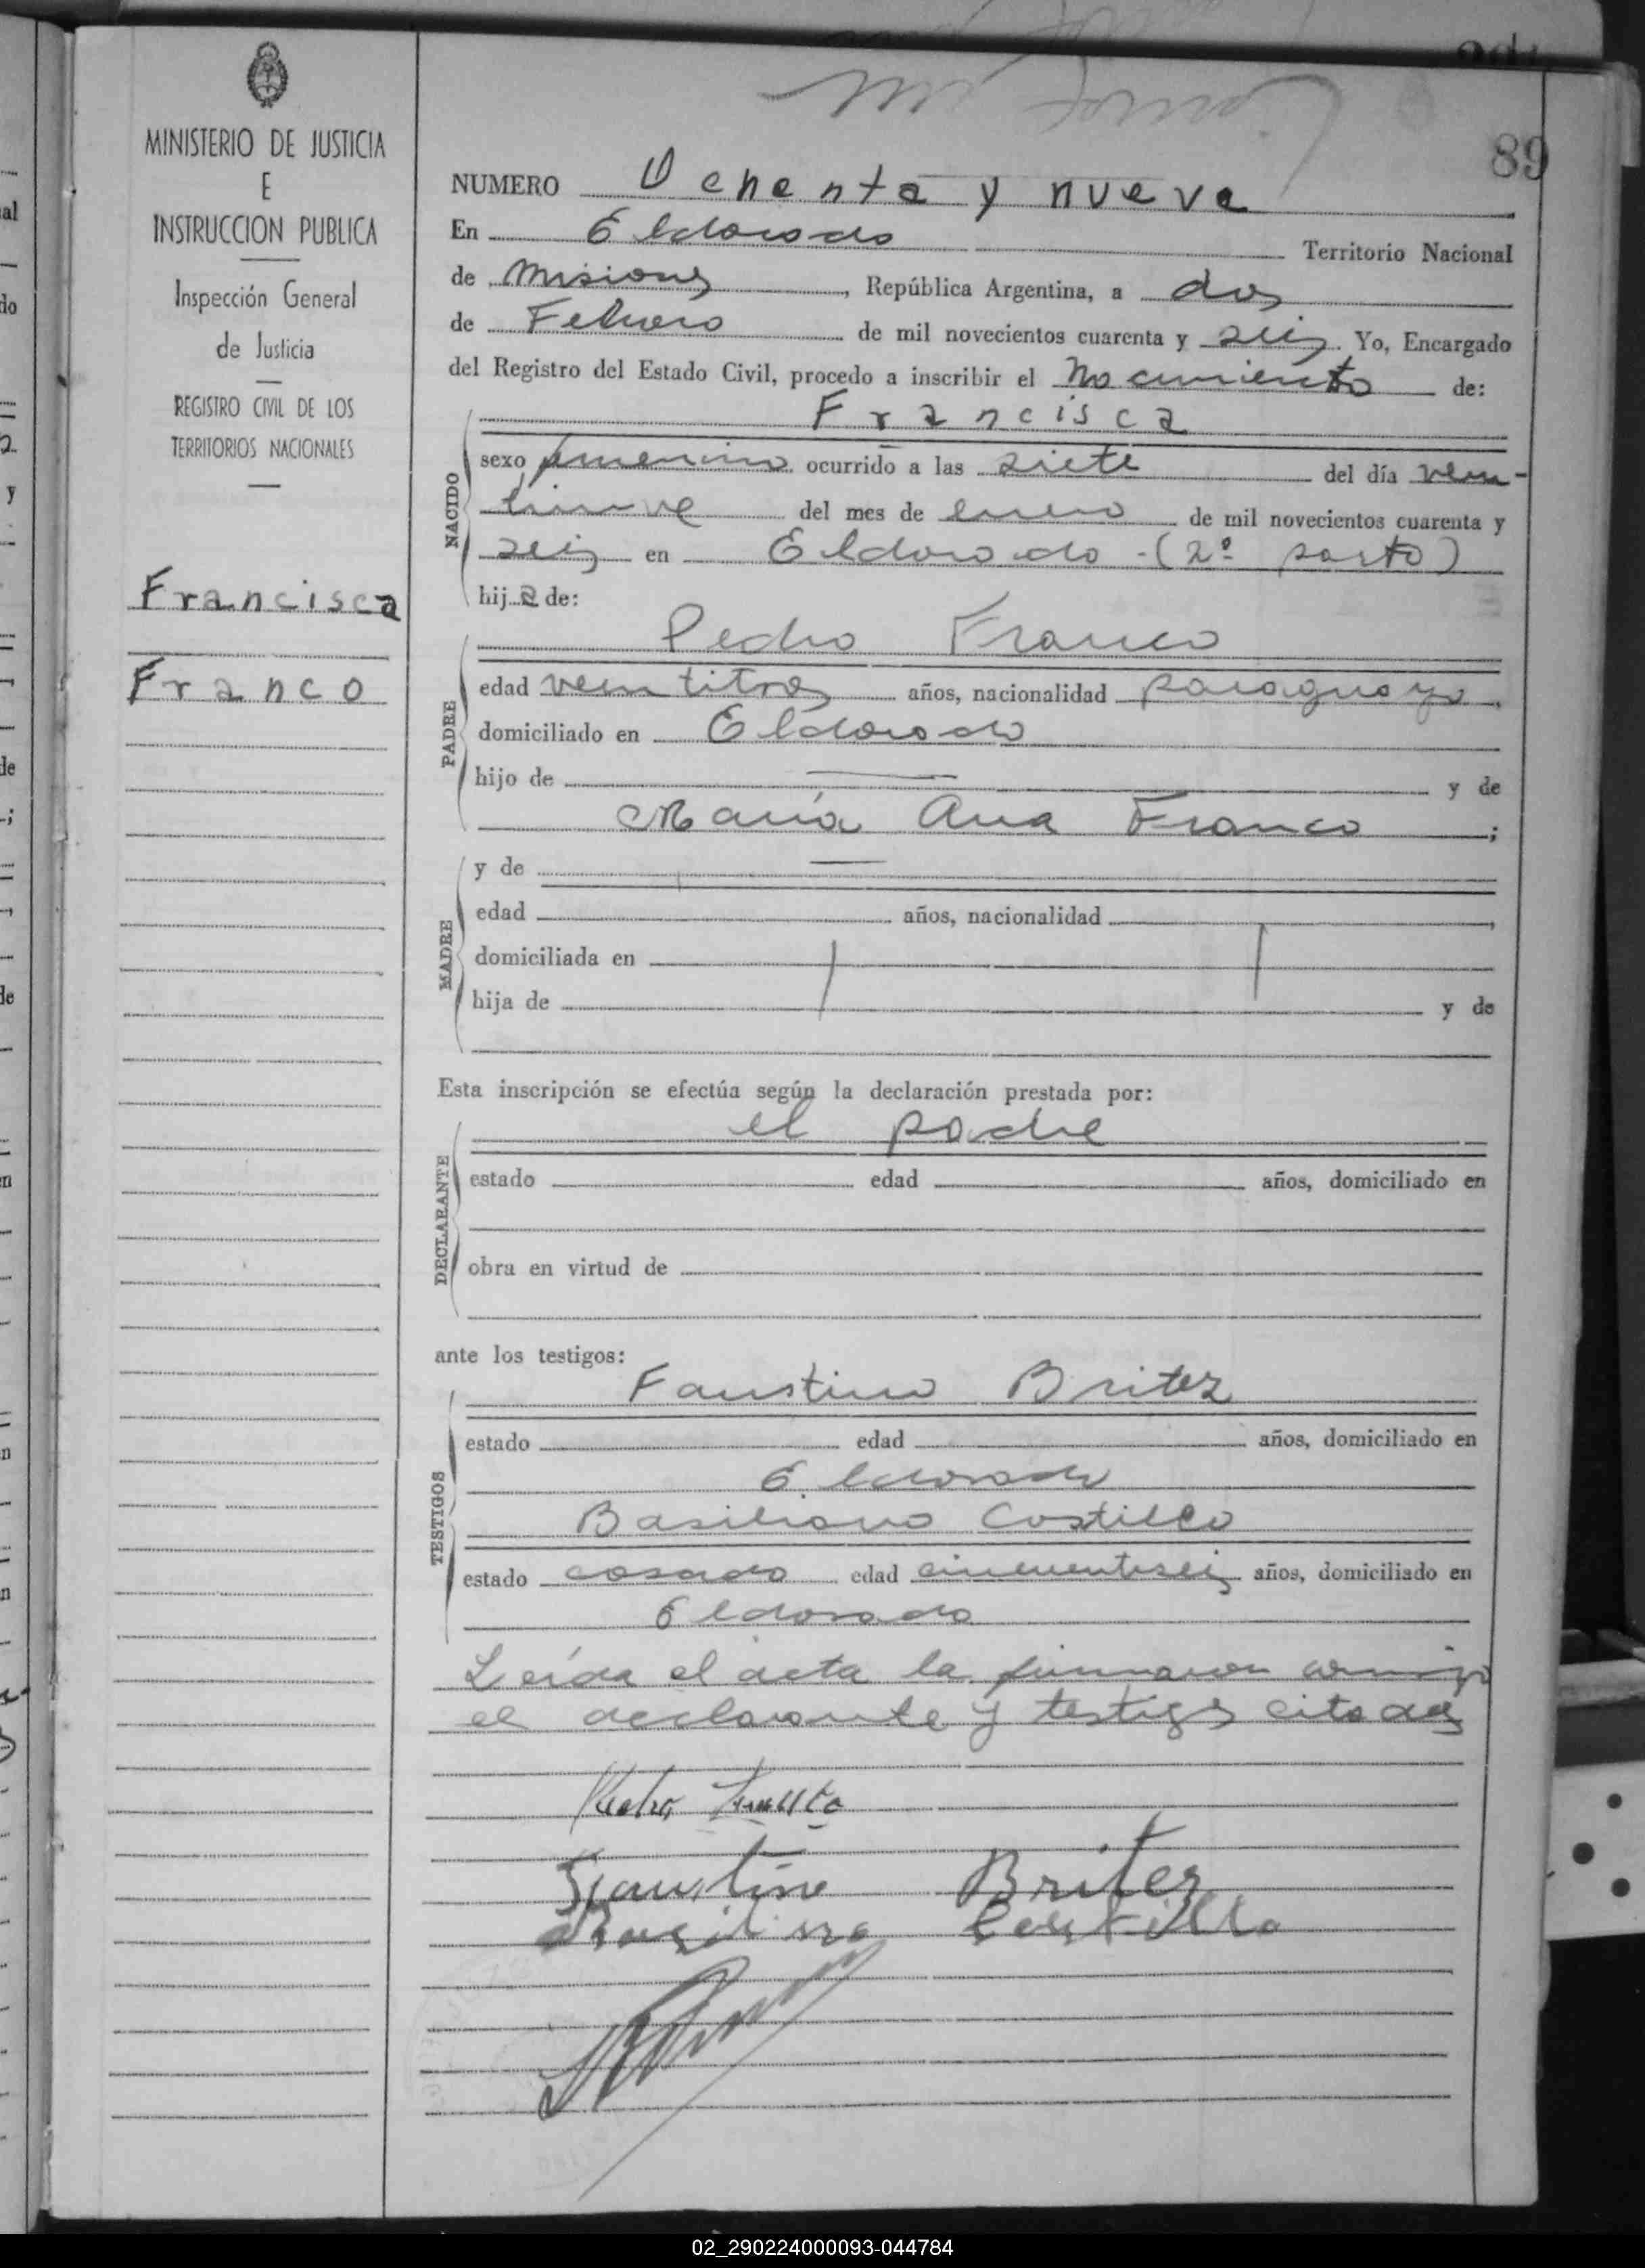 MINISTERIO DE JUSTICIA
E
INSTRUCCION PUBLICA
Inspección General
de Justicia
REGISTRO CIVIL DE LOS
TERRITORIOS NACIONALES
Francisca
Franco
89
NUMERO Ochenta y nueve
En Eldorado Territorio Nacional
de Misiones, República Argentina, a dos
de Febrero de mil novecientos cuarenta y seis. Yo, Encargado
del Registro del Estado Civil, procedo a inscribir el Nacimiento de:
Francisca
NACIDO
sexo femenino ocurrido a las siete del día vein-
tinueve del mes de enero de mil novecientos cuarenta y
seis en Eldorado - (2º parto)
hija de:
Pedro Franco
PADRE
edad veintitres años, nacionalidad paraguayo,
domiciliado en Eldorado
hijo de — y de
María Ana Franco;
MADRE
y de —
edad años, nacionalidad ,
domiciliada en
hija de y de
Esta inscripción se efectúa según la declaración prestada por:
el padre
DECLARANTE
estado edad años, domiciliado en
obra en virtud de
ante los testigos:
TESTIGOS
Faustino Britez
estado edad años, domiciliado en
Eldorado
Basiliano Costillo
estado casado edad cincuentiseis años, domiciliado en
Eldorado
Leída el acta la firmaron conmigo
el declarante y testigos citados
Pedro Franco
Faustino Britez
Basiliano Costillo
02_290224000093-044784